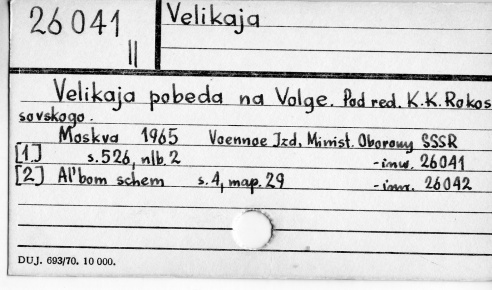 26041
II
Velikaja
Velikaja pobeda na Volge. Pod red. K.K. Rokos
sovskogo.
Moskva 1965 Voennoe Izd. Minist. Oborony SSSR
[1] s. 526, nlb. 2 -inw. 26041
[2] Al'bom schem s. 4, map. 29 -inw. 26042
DUJ. 693/70. 10 000.